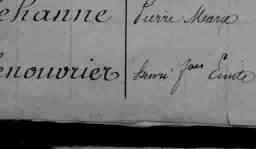 ehanne Pierre Marie
enouvrier Henri Jean Emile